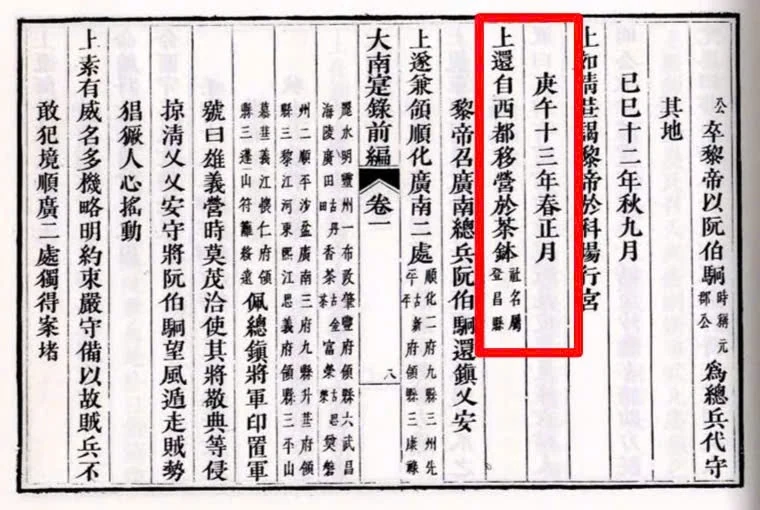 公卒黎帝以阮伯駉時稱元郡公為總兵代守
其地
己巳十二年秋九月
上如清華謁黎帝於科場行宮
庚午十三年春正月
上還自西都移營於茶鉢社名屬登昌縣
黎帝召廣南總兵阮伯駉還鎮乂安
上遂兼領順化廣南二處順化二府九縣三州先平古新平府領縣三康祿
大南寔錄前編 卷一 八
麗水明靈州一布政肇豐府領縣六武昌海陵廣田古丹田香茶古金茶富榮古思榮奠盤
州二順平沙盆廣南三府九縣升華府領縣三黎江河東熙江思義府領縣三平山
慕華義江懷仁府領縣三蓬山符離綏遠佩總鎮將軍印置軍
號曰雄義營時莫茂洽使其將敬典等侵
掠清乂乂安守將阮伯駉望風遁走賊勢
猖獗人心搖動
上素有威名多機略明約束嚴守備以故賊兵不
敢犯境順廣二處獨得案堵